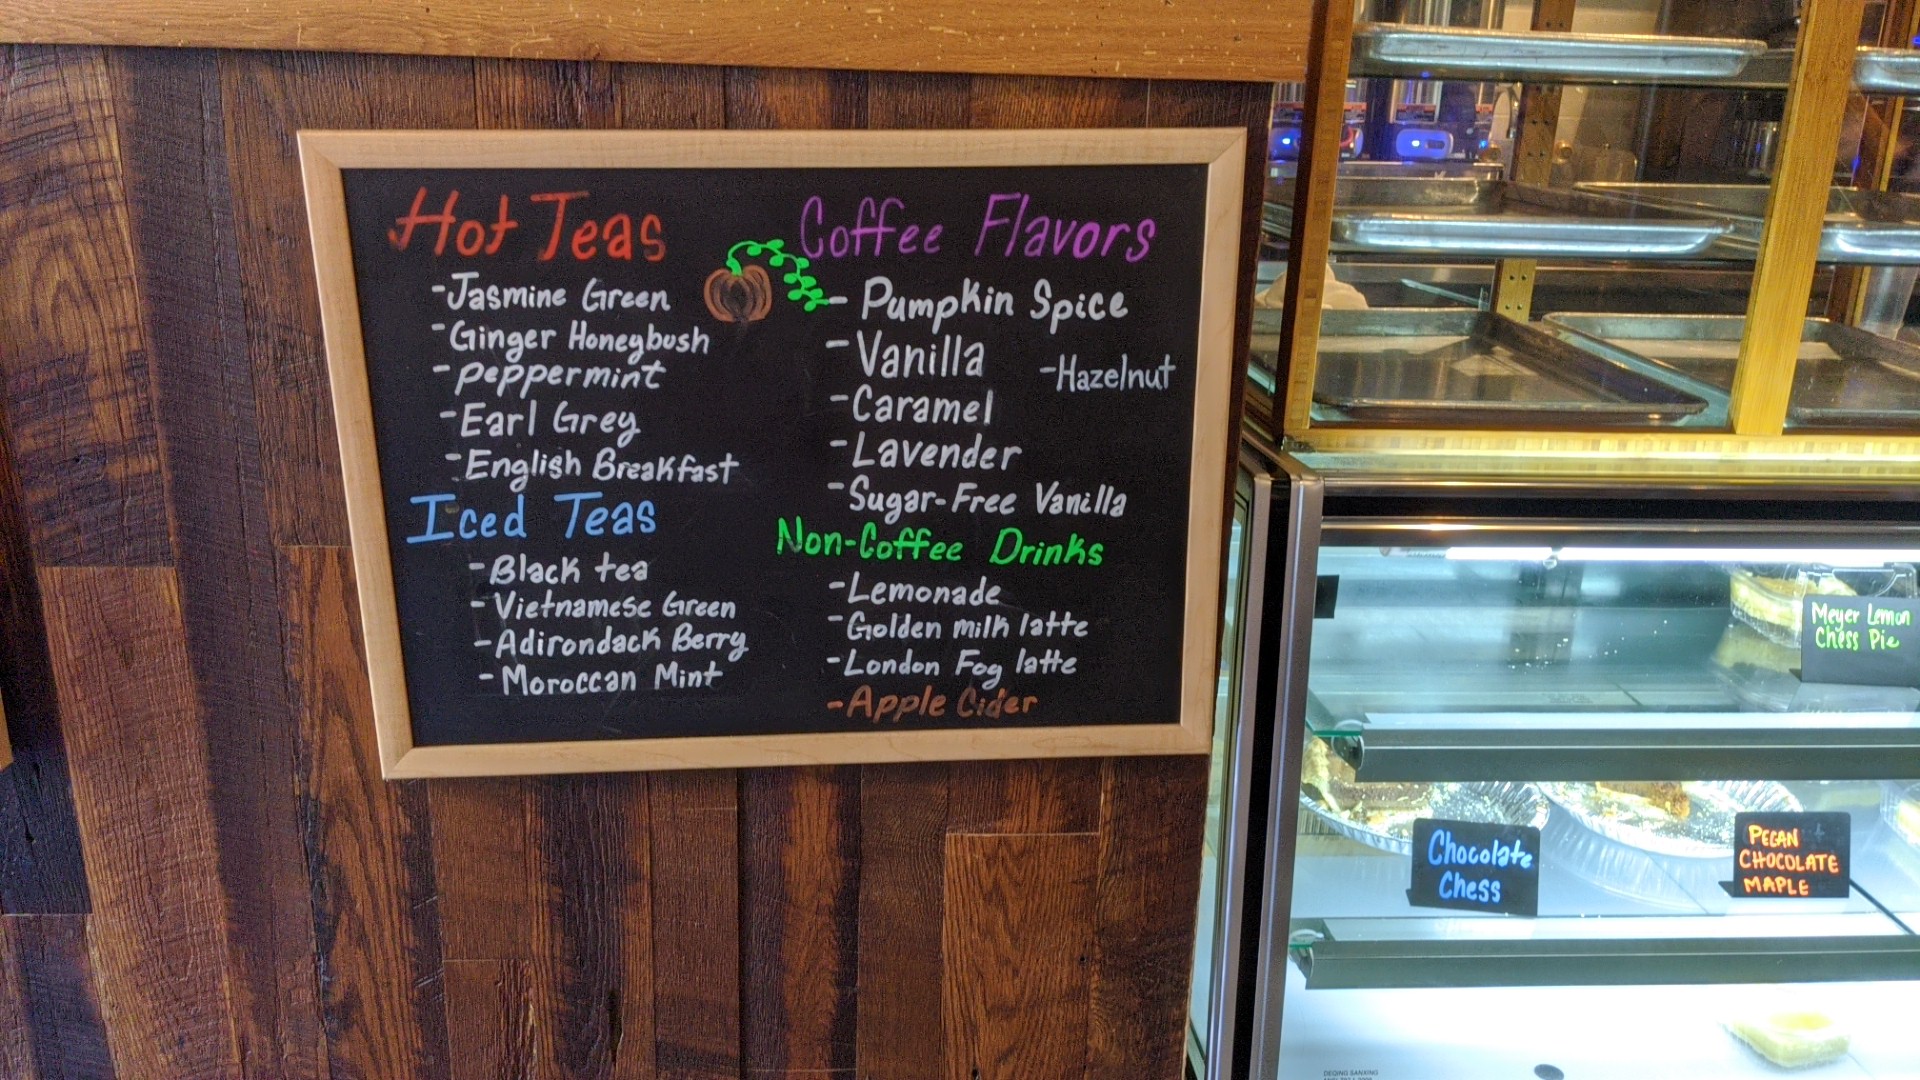 Hot Teas
-Jasmine Green
-Ginger Honeybush
-Peppermint
-Earl Grey
-English Breakfast
Iced Teas
-Black tea
-Vietnamese Green
-Adirondack Berry
-Moroccan Mint
Coffee Flavors
- Pumpkin Spice
-Vanilla
-Hazelnut
-Caramel
-Lavender
-Sugar-Free Vanilla
Non-Coffee Drinks
-Lemonade
-Golden milk latte
-London Fog latte
-Apple Cider
Meyer Lemon
Chess Pie
Chocolate
Chess
PECAN
CHOCOLATE
MAPLE
DEQING SANXING